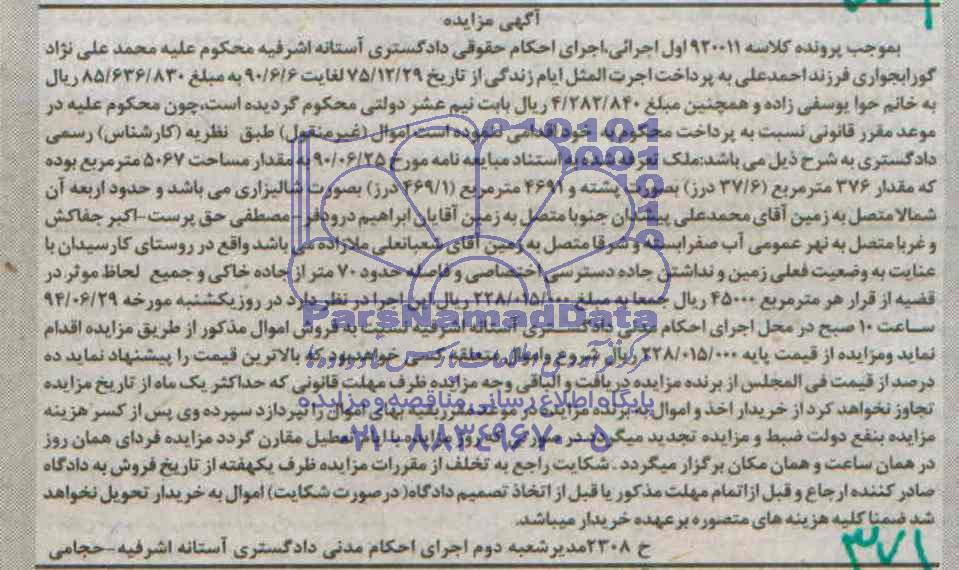 آگهی مزایده
بموجب پرونده کلاسه ۹۲۰۰۱۱ اول اجرائی،اجرای احکام حقوقی دادگستری آستانه اشرفیه محکوم علیه محمد علی نژاد
گورابجواری فرزند احمدعلی به پرداخت اجرت المثل ایام زندگی از تاریخ ۷۵/۱۲/۲۹ لغایت ۹۰/۶/۶ به مبلغ ۸۵/۶۳۶/۸۳۰ ریال
به خانم حوا یوسفی زاده و همچنین مبلغ ۴/۲۸۲/۸۴۰ ریال بابت نیم عشر دولتی محکوم گردیده است،چون محکوم علیه در
موعد مقرر قانونی نسبت به پرداخت محکوم به خود اقدامی ننموده است اموال (غیرمنقول) طبق نظریه (کارشناس) رسمی
دادگستری به شرح ذیل می باشد:ملک تعرفه شده به استناد مبایعه نامه مورخ ۹۰/۰۶/۲۵ به مقدار مساحت ۵۰۶۷ مترمربع بوده
که مقدار ۳۷۶ مترمربع (۳۷/۶ درز) بصورت پشته و ۴۶۹۱ مترمربع (۴۶۹/۱ درز) بصورت شالیزاری می باشد و حدود اربعه آن
شمالا متصل به زمین آقای محمدعلی پیشندان جنوبا متصل به زمین آقایان ابراهیم درودفر-مصطفی حق پرست-اکبر جفاکش
و غربا متصل به نهر عمومی آب صفرابسته و شرقا متصل به زمین آقای شعبانعلی ملازاده می باشد واقع در روستای کارسیدان با
عنایت به وضعیت فعلی زمین و نداشتن جاده دسترسی اختصاصی و فاصله حدود ۷۰ متر از جاده خاکی و جمیع لحاظ موثر در
قضیه از قرار هر مترمربع ۴۵۰۰۰ ریال جمعا به مبلغ ۲۲۸/۰۱۵/۰۰۰ ریال این اجرا در نظر دارد در روز یکشنبه مورخه ۹۴/۰۶/۲۹
ساعت ۱۰ صبح در محل اجرای احکام مدنی دادگستری آستانه اشرفیه نسبت به فروش اموال مذکور از طریق مزایده اقدام
نماید ومزایده از قیمت پایه ۲۲۸/۰۱۵/۰۰۰ ریال شروع واموال متعلقه کسی خواهد بود که بالاترین قیمت را پیشنهاد نماید ده
درصد از قیمت فی المجلس از برنده مزایده دریافت و الباقی وجه مزایده ظرف مهلت قانونی که حداکثر یک ماه از تاریخ مزایده
تجاوز نخواهد کرد از خریدار اخذ و اموال به برنده مزایده در موعد مقرر بقیه بهای اموال را نپردازد سپرده وی پس از کسر هزینه
مزایده بنفع دولت ضبط و مزایده تجدید میگردد در صورتی که روز مزایده با ایام تعطیل مقارن گردد مزایده فردای همان روز
در همان ساعت و همان مکان برگزار میگردد . شکایت راجع به تخلف از مقررات مزایده ظرف یکهفته از تاریخ فروش به دادگاه
صادر کننده ارجاع و قبل ازاتمام مهلت مذکور یا قبل از اتخاذ تصمیم دادگاه( درصورت شکایت) اموال به خریدار تحویل نخواهد
شد ضمنا کلیه هزینه های متصوره بر عهده خریدار میباشد.
خ ۲۳۰۸ مدیرشعبه دوم اجرای احکام مدنی دادگستری آستانه اشرفیه-حجامی
۳۷۱
ParsNamadData
پایگاه اطلاع رسانی مناقصه و مزایده
۰۲۱-۸۸۳۴۹۶۷۰-۵